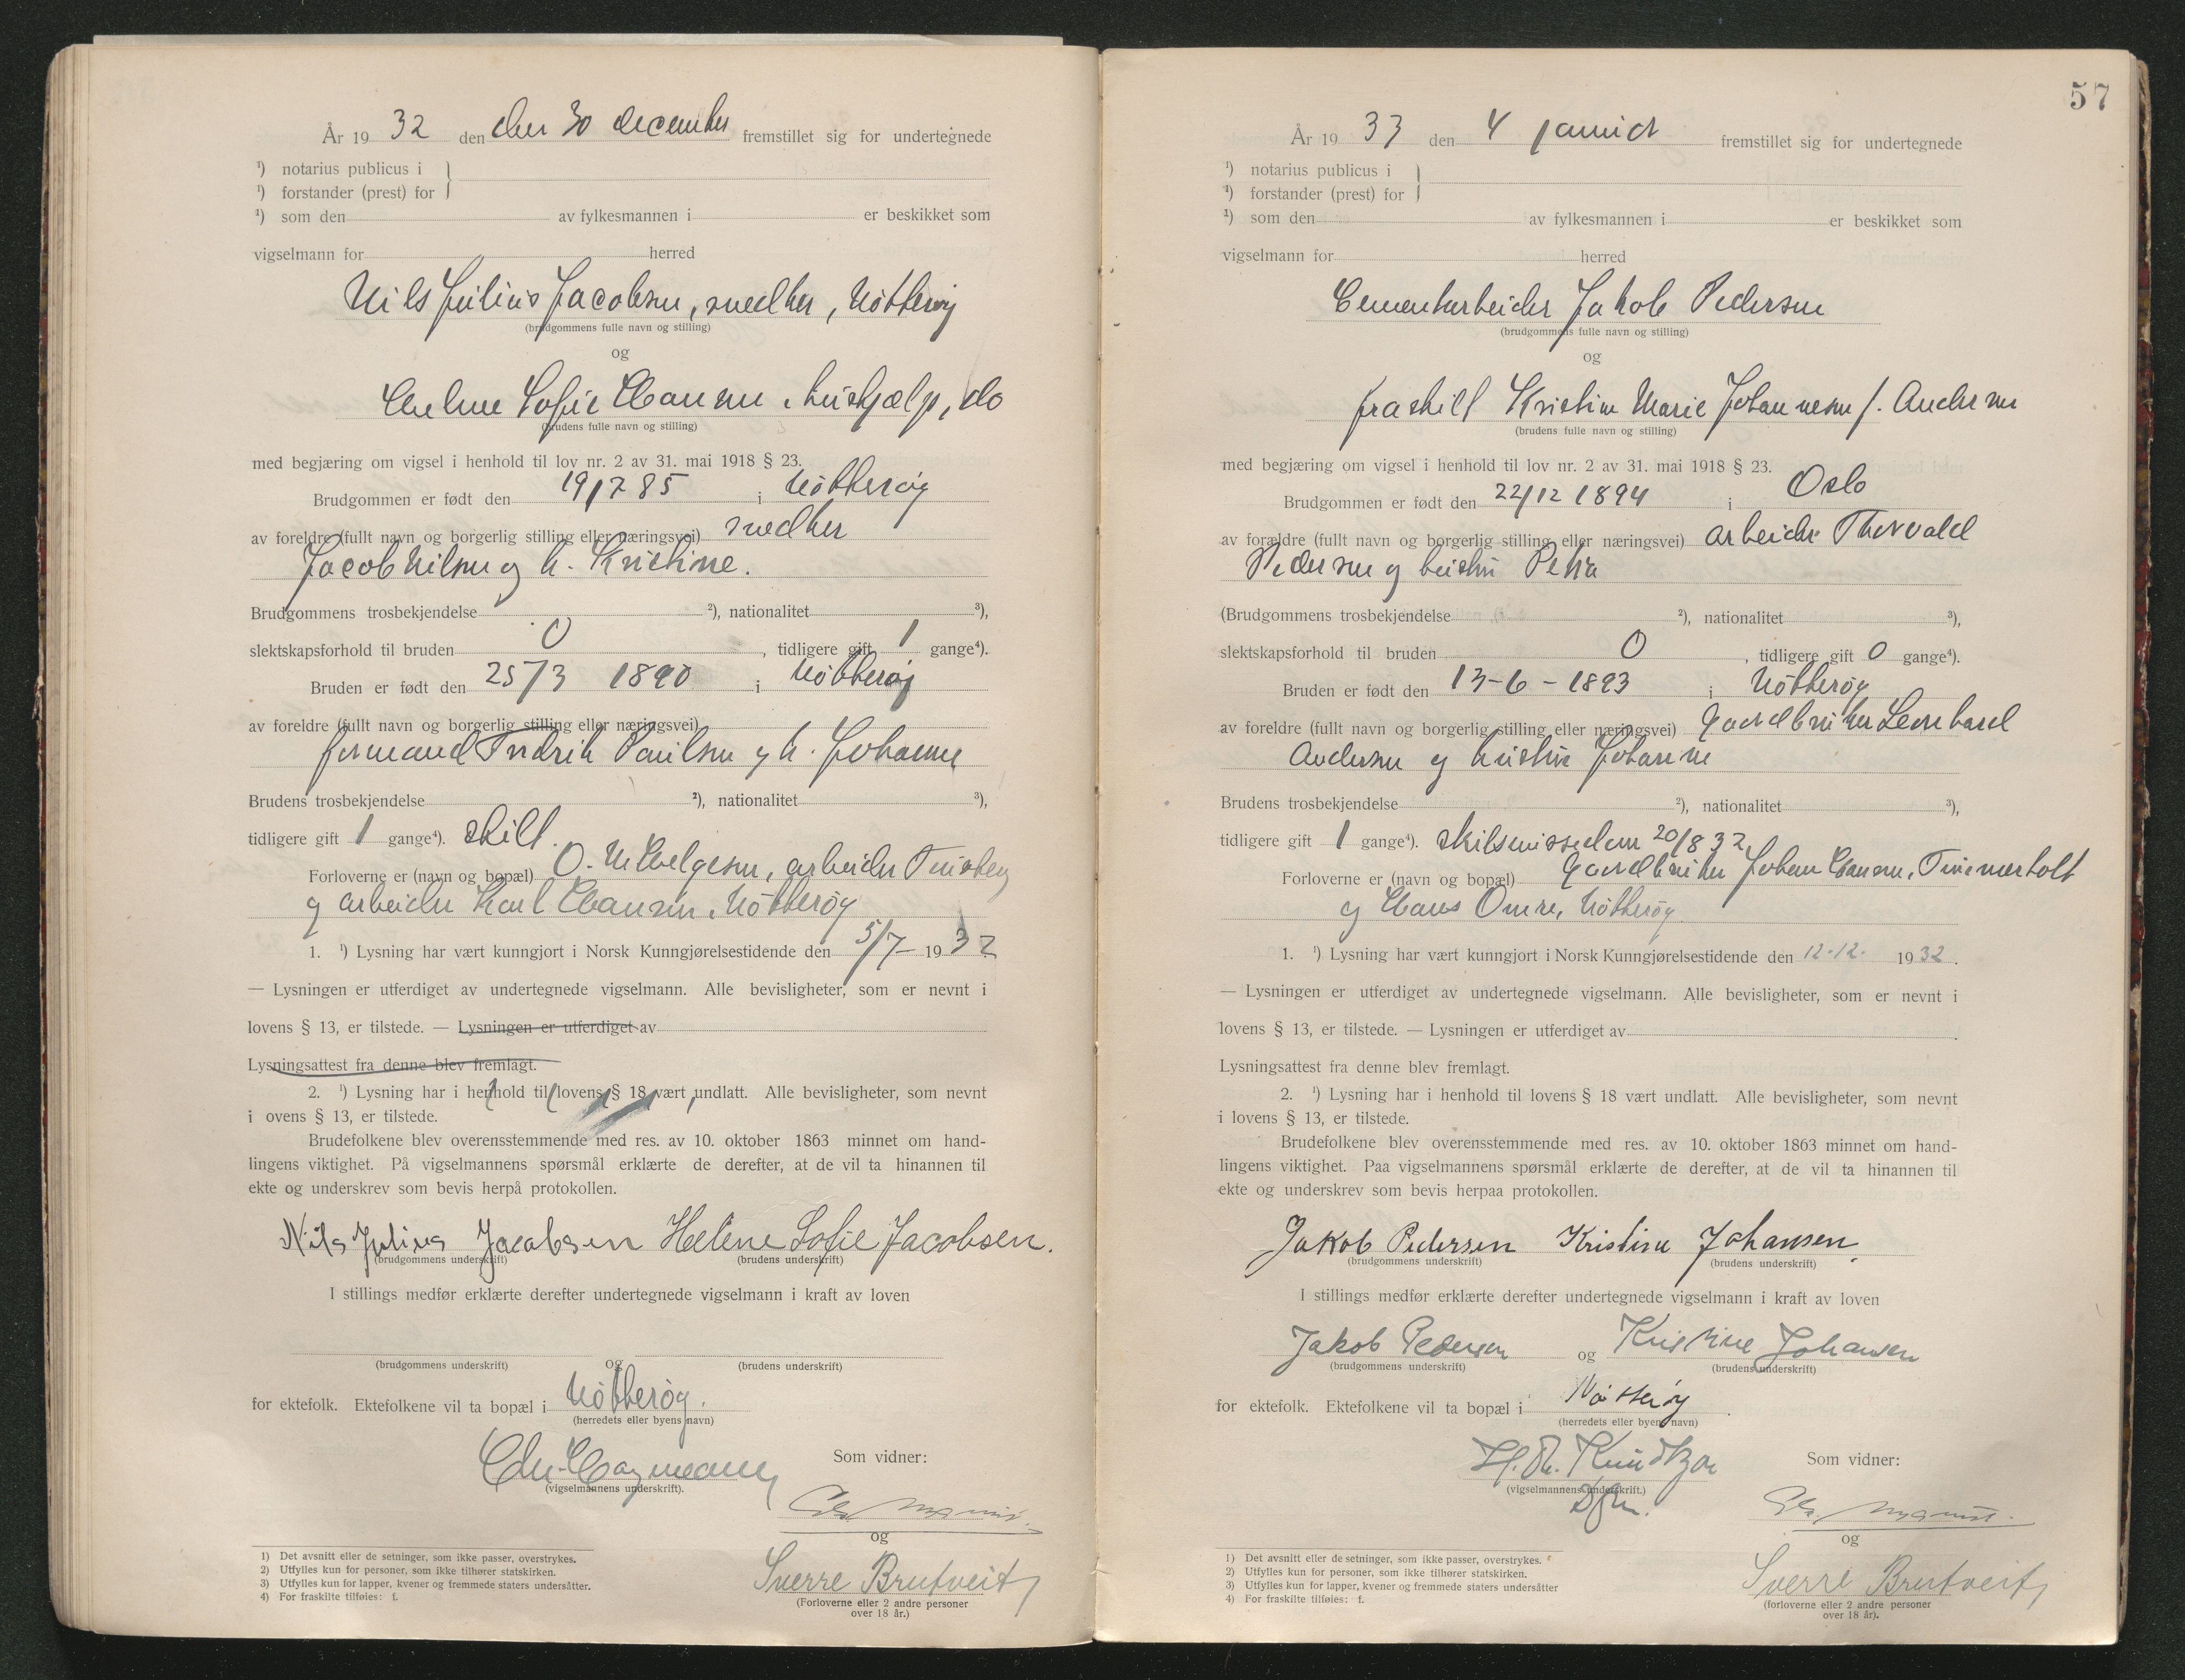 År 19 32 den den 30 december fremstillet sig for undertegnede
¹) notarius publicus i
¹) forstander (prest) for
¹) som den av fylkesmannen i er beskikket som
vigselmann for herred
Nils Julius Jacobsen, snedker, Nøtterøy
(brudgommens fulle navn og stilling)
og
Helene Sofie Hansen, hushjælp, do
(brudens fulle navn og stilling)
med begjæring om vigsel i henhold til lov nr. 2 av 31. mai 1918 § 23.
Brudgommen er født den 19/7 85 i Nøtterøy
av foreldre (fullt navn og borgerlig stilling eller næringsvei) snedker
Jacob Nilsen og h. Kristine.
Brudgommens trosbekjendelse ²), nationalitet ³),
slektskapsforhold til bruden 0, tidligere gift 1 gange⁴).
Bruden er født den 25/3 1890 i Nøtterøy
av foreldre (fullt navn og borgerlig stilling eller næringsvei)
formand Fredrik Paulsen og h. Johanne
Brudens trosbekjendelse ²), nationalitet ³),
tidligere gift 1 gange⁴). skilt.
Forloverne er (navn og bopæl) O. M. Helgesen, arbeider Tønsberg
og arbeider Karl Hansen, Nøtterøy
1. ¹) Lysning har vært kunngjort i Norsk Kunngjørelsestidende den 5/7 1932
— Lysningen er utferdiget av undertegnede vigselmann. Alle bevisligheter, som er nevnt i
lovens § 13, er tilstede. — Lysningen er utferdiget av
Lysningsattest fra denne blev fremlagt.
2. ¹) Lysning har i henhold til lovens § 18 vært undlatt. Alle bevisligheter, som nevnt
i ovens § 13, er tilstede.
Brudefolkene blev overensstemmende med res. av 10. oktober 1863 minnet om hand-
lingens viktighet. På vigselmannens spørsmål erklærte de derefter, at de vil ta hinannen til
ekte og underskrev som bevis herpå protokollen.
Nils Julius Jacobsen Helene Sofie Jacobsen.
(brudgommens underskrift) (brudens underskrift)
I stillings medfør erklærte derefter undertegnede vigselmann i kraft av loven
og
(brudgommens underskrift) (brudens underskrift)
for ektefolk. Ektefolkene vil ta bopæl i Nøtterøy.
(herredets eller byens navn)
Som vidner:
(vigselmannens underskrift).
og
Sverre Brutveit
(Forloverne eller 2 andre personer
over 18 år.)
1) Det avsnitt eller de setninger, som ikke passer, overstrykes.
2) Utfylles kun for personer, som ikke tilhører statskirken.
3) Utfylles kun for lapper, kvener og fremmede staters undersåtter.
4) For fraskilte tilføies: f.
57
År 19 33 den 4 januar fremstillet sig for undertegnede
¹) notarius publicus i
¹) forstander (prest) for
¹) som den av fylkesmannen i er beskikket som
vigselmann for herred
Cementarbeider Jakob Pedersen
(brudgommens fulle navn og stilling)
og
fraskilt Kristine Marie Johannesen f. Andersen
(brudens fulle navn og stilling)
med begjæring om vigsel i henhold til lov nr. 2 av 31. mai 1918 § 23.
Brudgommen er født den 22/12 1894 i Oslo
av forældre (fullt navn og borgerlig stilling eller næringsvei) arbeider Thorvald
Pedersen og hustru Petra
(Brudgommens trosbekjendelse ²), nationalitet ³),
slektskapsforhold til bruden 0, tidligere gift 0 gange⁴).
Bruden er født den 13-6-1893 i Nøtterøy
av foreldre (fullt navn og borgerlig stilling eller næringsvei) gaardbruker Leonhard
Andersen og hustru Johanne
Brudens trosbekjendelse ²), nationalitet ³),
tidligere gift 1 gange⁴). skilsmissedom 20/8 32
Forloverne er (navn og bopæl) gaardbruker Johan Hansen, Timmerholt
og Hans Omre, Nøtterøy
1. ¹) Lysning har vært kunngjort i Norsk Kunngjørelsestidende den 12-12- 1932.
— Lysningen er utferdiget av undertegnede vigselmann. Alle bevisligheter, som er nevnt i
lovens § 13, er tilstede. — Lysningen er utferdiget av
Lysningsattest fra denne blev fremlagt.
2. ¹) Lysning har i henhold til lovens § 18 vært undlatt. Alle bevisligheter, som nevnt
i lovens § 13, er tilstede.
Brudefolkene blev overensstemmende med res. av 10. oktober 1863 minnet om hand-
lingens viktighet. Paa vigselmannens spørsmål erklærte de derefter, at de vil ta hinannen til
ekte og underskrev som bevis herpaa protokollen.
Jakob Pedersen Kristine Johansen
(brudgommens underskrift) (brudens underskrift)
I stillings medfør erklærte derefter undertegnede vigselmann i kraft av loven
Jakob Pedersen og Kristine Johansen
(brudgommens underskrift) (brudens underskrift)
for ektefolk. Ektefolkene vil ta bopæl i Nøtterøy.
(herredets eller byens navn)
Som vidner:
(vigselmannens underskrift.)
og
Sverre Brutveit
(forloverne eller 2 andre personer
over 18 år).
1) Det avsnitt eller de setninger, som ikke passer, overstrykes.
2) Utfylles kun for personer, som ikke tilhører statskirken.
3) Utfylles kun for lapper, kvener og fremmede staters undersåtter
4) For fraskilte tilføies: f.